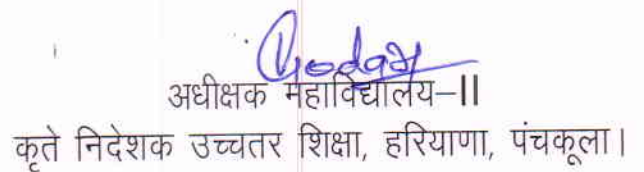 अधीक्षक महाविद्यालय–II
कृते निदेशक उच्चतर शिक्षा, हरियाणा, पंचकूला।